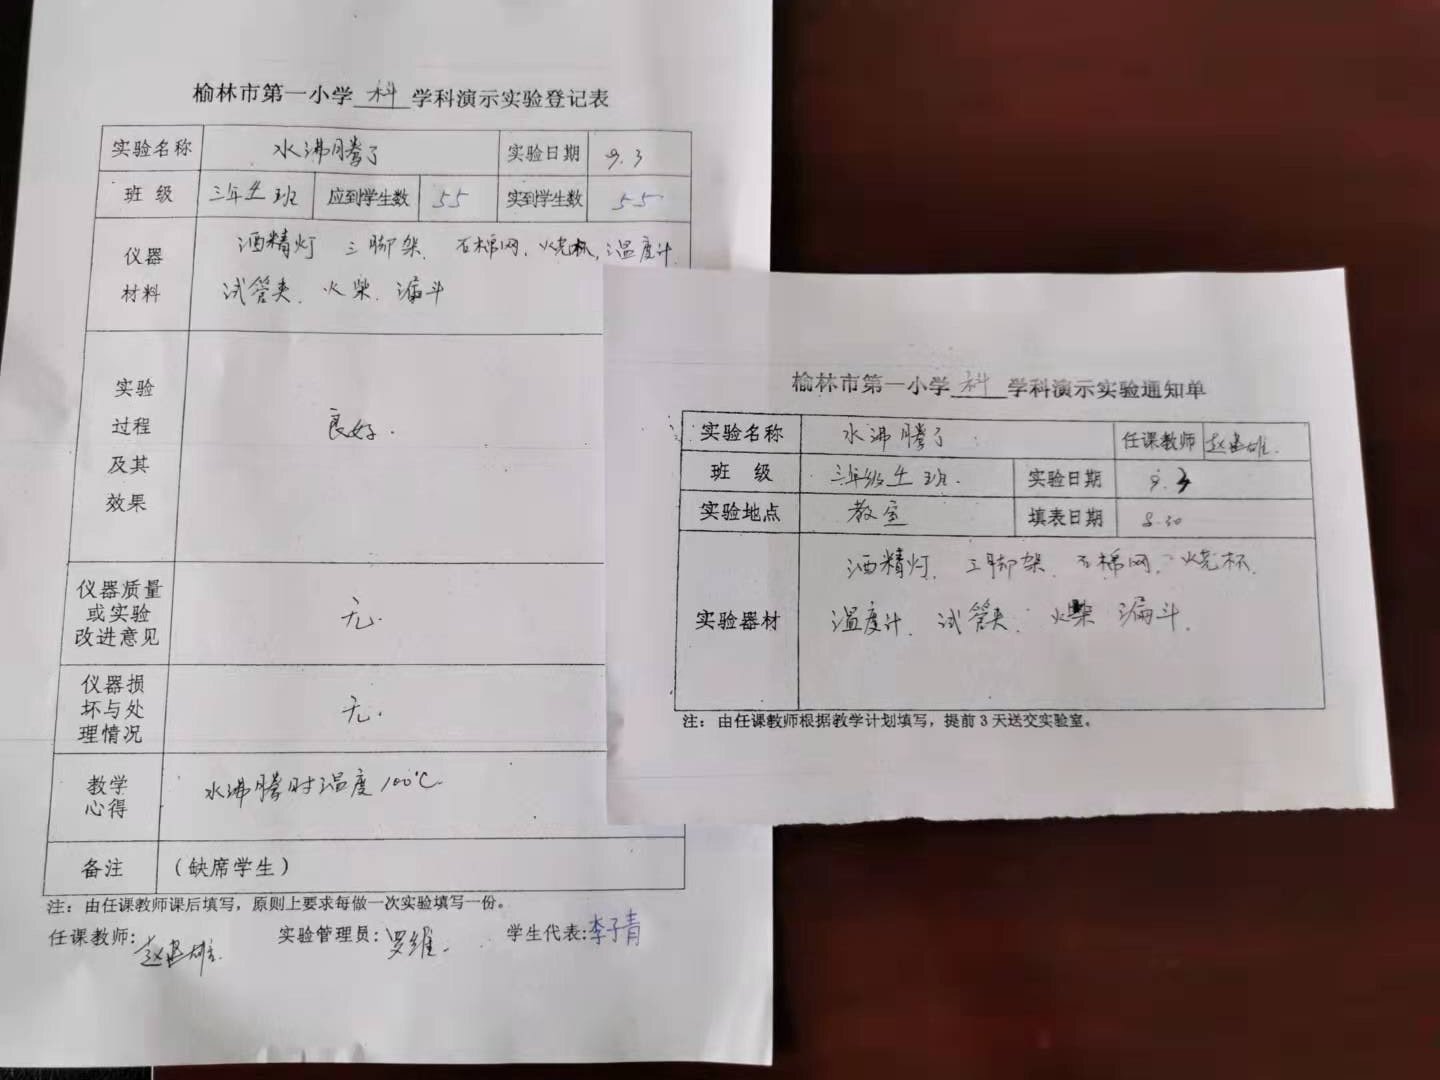 榆林市第一小学 科 学科演示实验登记表
实验名称 水沸腾了 实验日期 9.3
班 级 三年 班 应到学生数 55 实到学生数 55
仪器材料 酒精灯 三脚架、石棉网、烧杯、温度计、
试管夹、火柴、漏斗
实验过程及其效果 良好.
仪器质量或实验改进意见 无.
仪器损坏与处理情况 无.
教学心得 水沸腾时温度100℃
备注 （缺席学生）
注：由任课教师课后填写，原则上要求每做一次实验填写一份。
任课教师: 赵 雄 实验管理员: 罗维 学生代表: 李子青
榆林市第一小学 科 学科演示实验通知单
实验名称 水沸腾了 任课教师 赵 雄
班 级 三年级 班. 实验日期 9.3
实验地点 教室 填表日期 8.30
实验器材 酒精灯、三脚架、石棉网、烧杯、
温度计、试管夹、火柴 漏斗、
注：由任课教师根据教学计划填写，提前3天送交实验室。